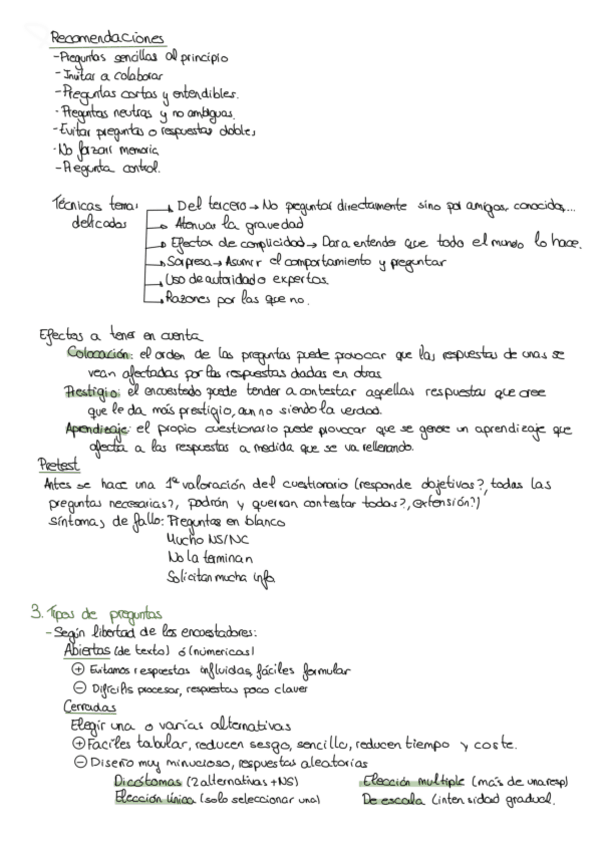 Recomendaciones
-Preguntas sencillas al principio
-Invitar a colaborar
-Preguntas cortas y entendibles.
-Preguntas neutras y no ambiguas.
-Evitar preguntas o respuestas dobles,
-No forzar memoria
-Pregunta control.
Técnicas temas delicados
Del tercero → No preguntar directamente sino por amigos, conocidos,...
Atenuar la gravedad
Efectos de complicidad → Dar a entender que todo el mundo lo hace.
Sorpresa → Asumir el comportamiento y preguntar
Uso de autoridad o expertos.
Razones por las que no.
Efectos a tener en cuenta
Colocación: el orden de las preguntas puede provocar que las respuestas de unas se
vean afectadas por las respuestas dadas en otras
Prestigio: el encuestado puede tender a contestar aquellas respuestas que cree
que le da más prestigio, aun no siendo la verdad.
Aprendizaje: el propio cuestionario puede provocar que se genere un aprendizaje que
afecta a las respuestas a medida que se va rellenando.
Pretest
Antes se hace una 1ª valoración del cuestionario (responde objetivos?, todas las
preguntas necesarias?, podrán y querran contestar todas?, extensión?)
síntomas de fallo: Preguntas en blanco
Mucho NS/NC
No la terminan
Solicitan mucha info.
3. Tipos de preguntas
- Según libertad de los encuestadores:
Abiertas (de texto) ó (númericas)
⊕ Evitamos respuestas influidas, fáciles formular
⊖ Difíciles procesar, respuestas poco claves
Cerradas
Elegir una o varias alternativas
⊕ Faciles tabular, reducen sesgo, sencillo, reducen tiempo y coste.
⊖ Diseño muy minucioso, respuestas aleatorias
Dicótomas (2 alternativas + NS) Elección multiple (más de una resp)
Elección única (solo seleccionar una) De escala (intensidad gradual.